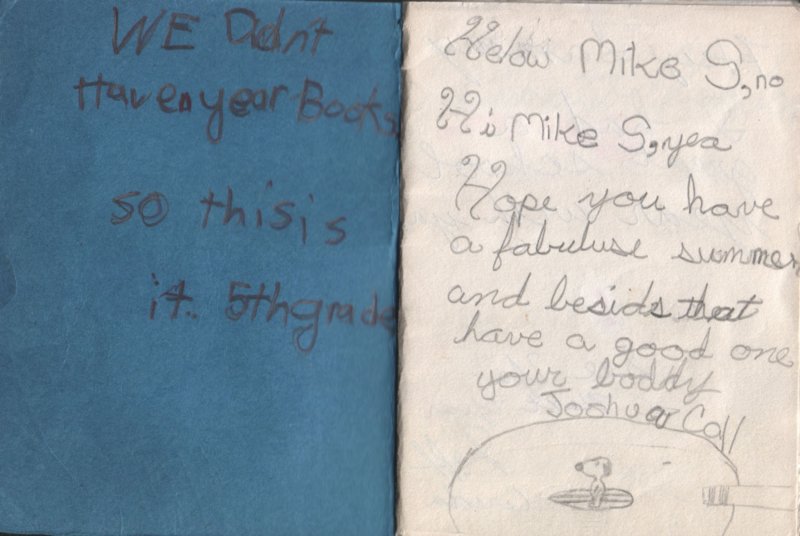 WE Didn't
Haven year Books
so this is
it. 5th grade
Helow Mike S, no
Hi Mike S, yea
Hope you have
a fabuluse summer
and besids that
have a good one
your boddy
Joshua Call